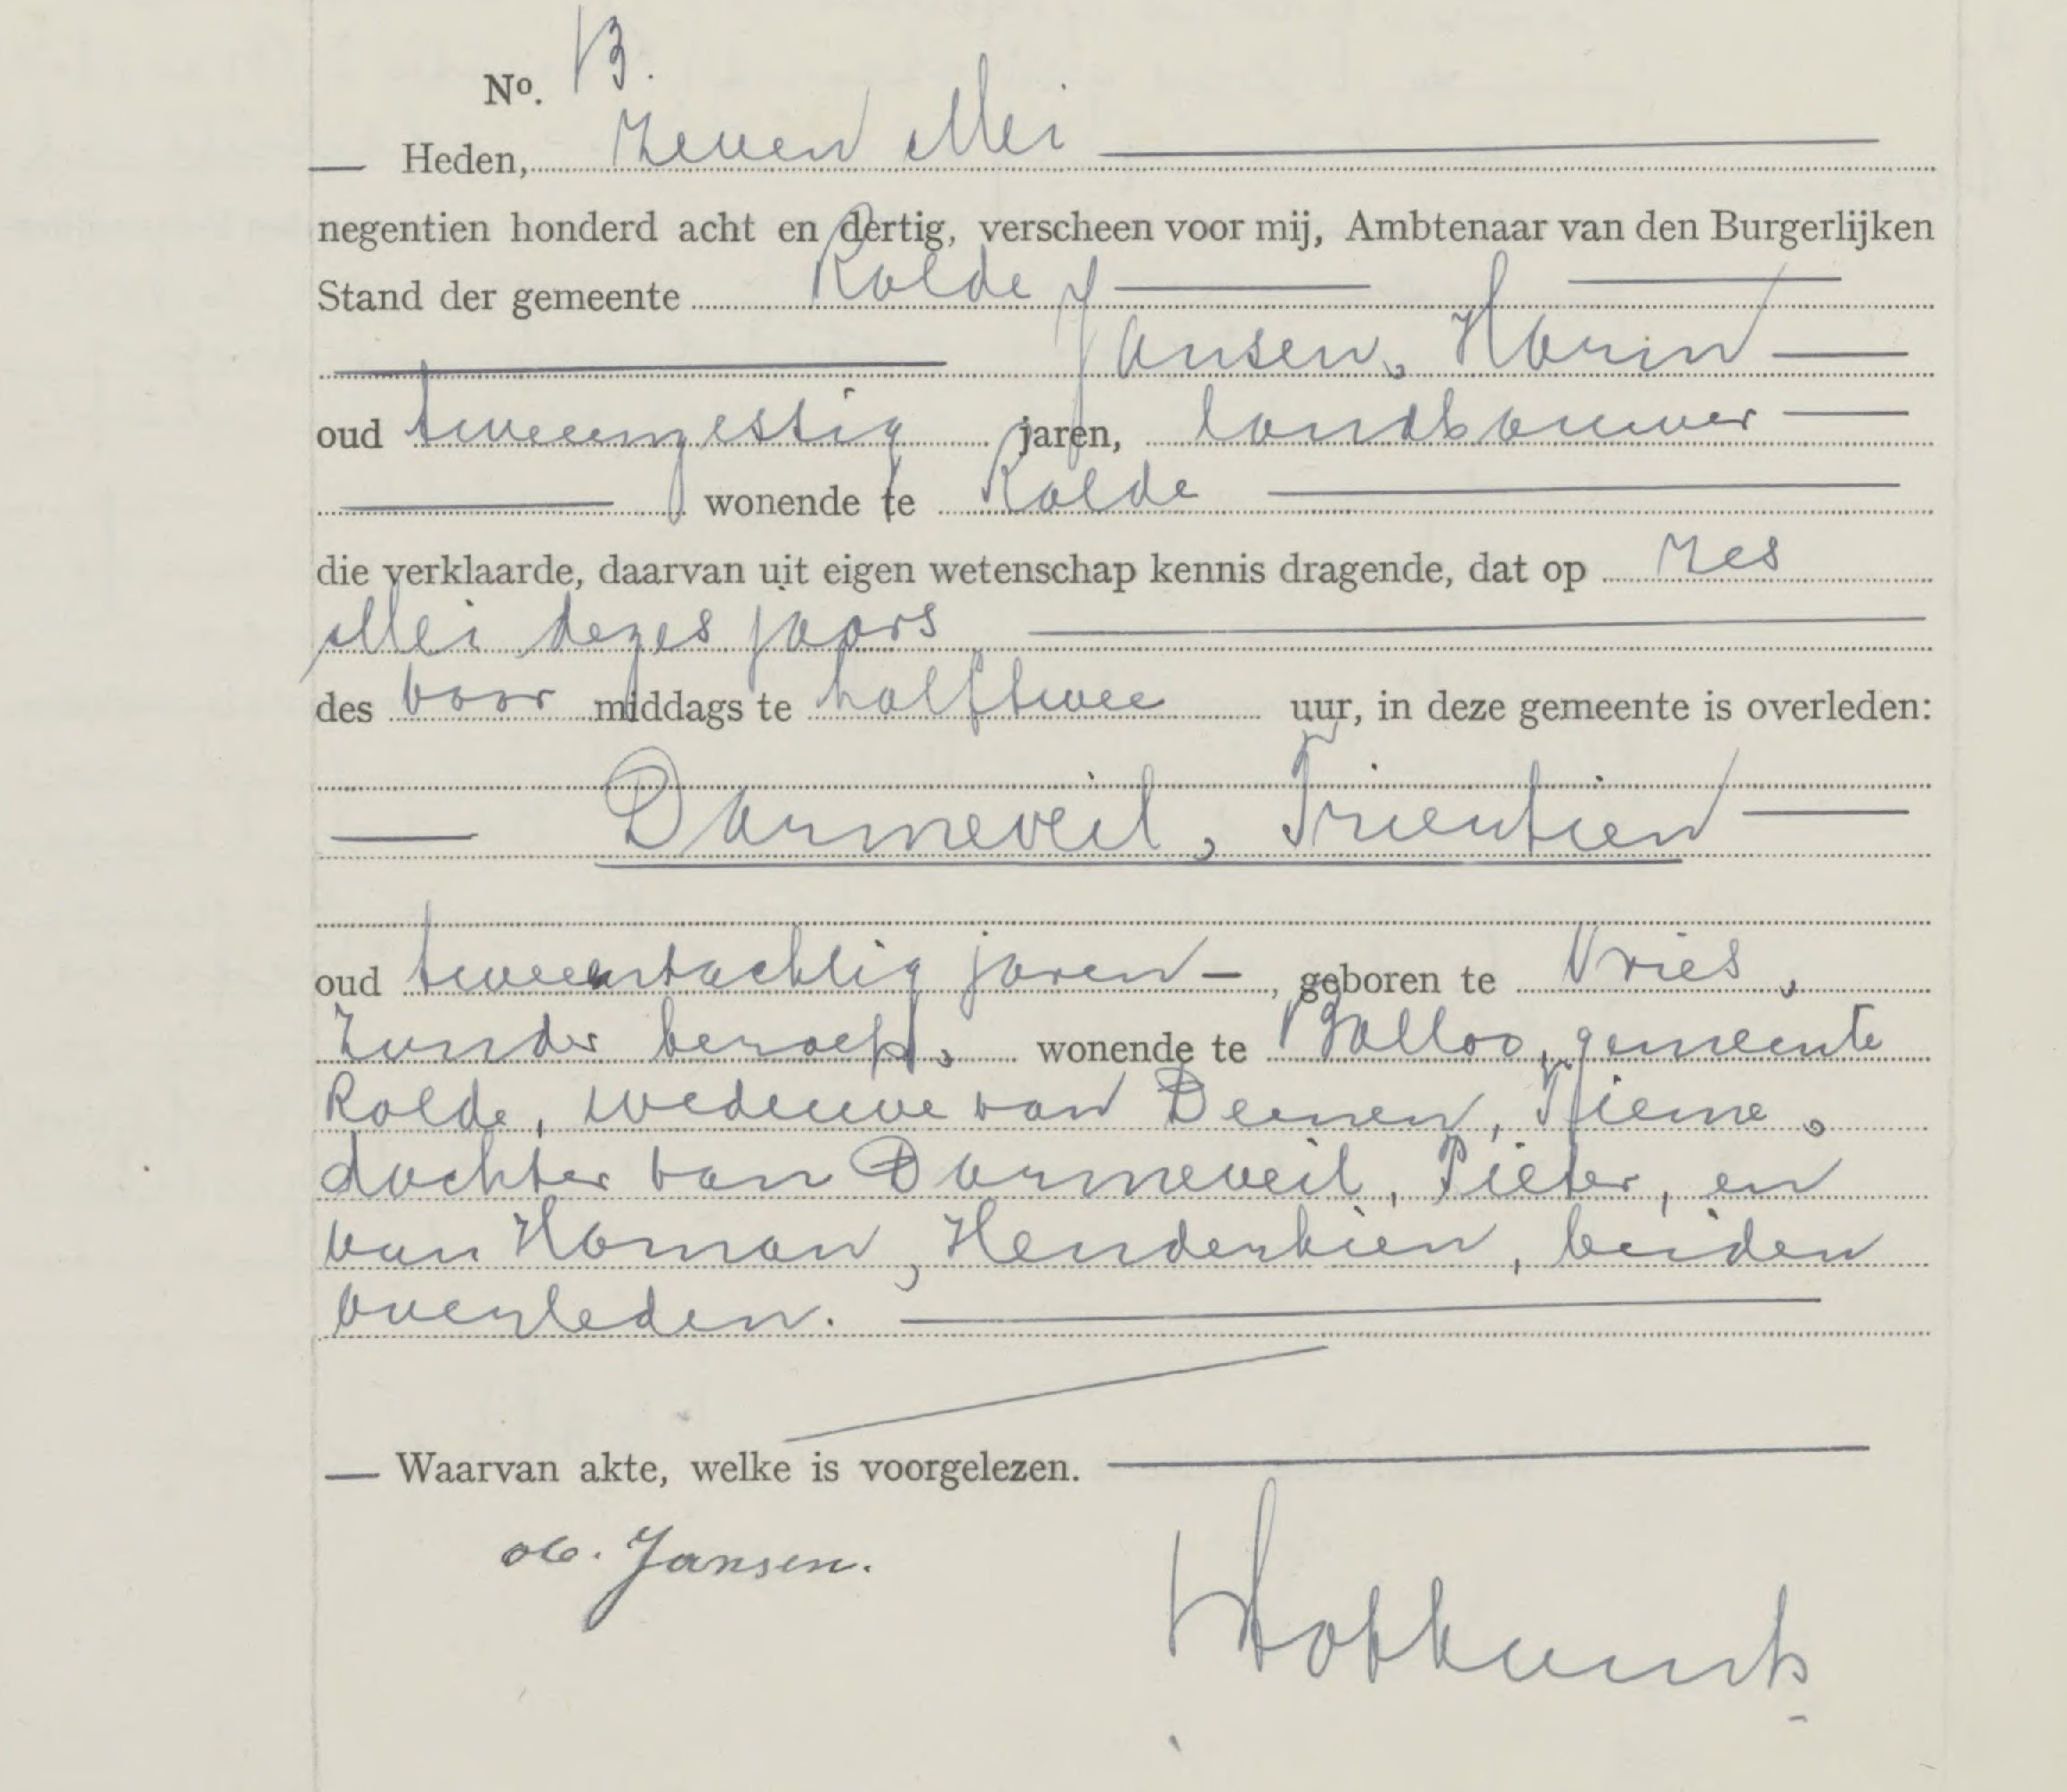 No. 13.
Heden, Zeven Mei
negentien honderd acht en dertig, verscheen voor mij, Ambtenaar van den Burgerlijken
Stand der gemeente Rolde
Jansen, Harm
oud tweeenzestig jaren, landbouwer
wonende te Rolde
die verklaarde, daarvan uit eigen wetenschap kennis dragende, dat op zes
Mei dezes jaars
des voor middags te halftwee uur, in deze gemeente is overleden:
Darmeveil, Trientien
oud tweeentachtig jaren, geboren te Vries,
Zonder beroep, wonende te Balloo, gemeente
Rolde, weduwe van Deenen, Tjieme,
dochter van Darmeveil, Pieter, en
van Homan, Henderkien, beiden
overleden.
Waarvan akte, welke is voorgelezen.
H. Jansen.